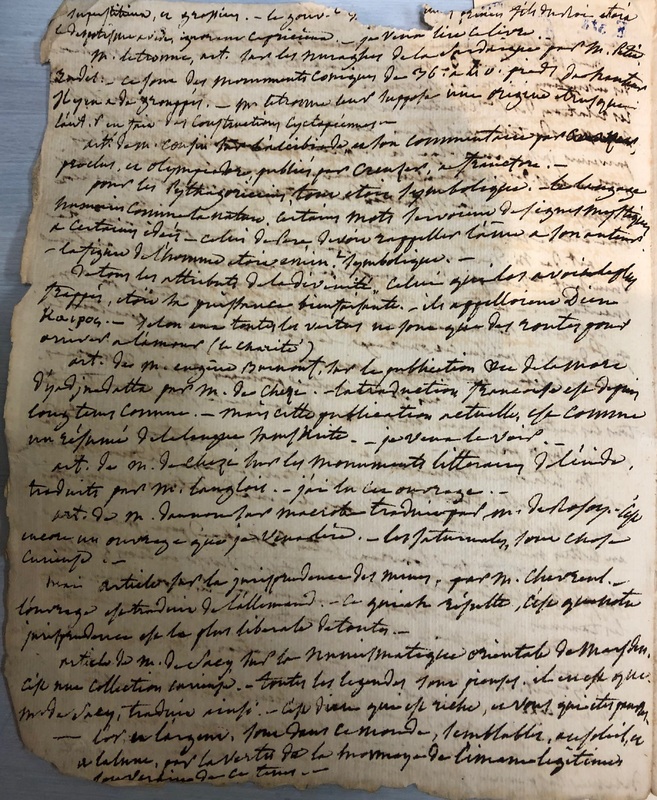 superstitieux, et grossier. - le gouv.t
despotique avide, ignorant capricieux. - je veux lire ce livre.
M. letronne, art. sur les nuraghes de la Sardaigne par M. Petit
Radel. - ce sont des monuments coniques de 36. à 60. pieds de hauteur
Il y en a de grouppés. - M. letronne leur suppose une origine etrusque
l'aut.r en fait des constructions Cyclopéennes -
art. de m. cousin sur l'alcibiade et son commentaire par
proclus, et olympiodore, publiés par Creuser, -
pour les Pythagoriciens, tout etoit symbolique. - le langage
humain comme la nature, certains mots servoient de signes mystiques
a certaines idées - celui de Pere devoit rappeller l'ame a son auteur
- la figure de l'homme etoit symbolique. -
De tous les attributs de la divinité, celui qui les avoit le plus
frappés, etoit sa puissance bienfaisante. - ils appelloient Dieu
Καιρος. - selon eux toutes les vertus ne sont que des routes pour
arriver a l'amour (la charité)
art. de m. eugène Burnouf, sur la publication de la mort
d'yadjnadatta par M. de Chezi. - la traduction françoise est depuis
longtems connue. - mais cette publication actuelle, est comme
un résumé de la langue sanskrite. - je veux le voir. -
art. de m. de chezi sur les monuments litteraires de l'inde,
traduits par M. langlois. - j'ai lu cet ouvrage. -
art. de m. daunou sur macrobe traduit par M. de Rosoy. - c'est
encore un ouvrage que je veux lire. - les saturnales, sont chose
curieuse. -
mai article sur la jurisprudence des mines, par M. Chevreul. -
l'ouvrage est traduit de l'allemand. - ce qui en résulte, c'est que notre
jurisprudence est la plus liberale de toutes. -
article de M. de Sacy sur la Numismatique orientale de Marsden,
c'est une collection curieuse. - toutes les legendes sont pieuses. il en est que
M. de Sacy, traduit ainsi. - c'est dieu qui est riche, et vous qui etes pauvres,
- l'or et l'argent, sont dans ce monde, semblables, au soleil, et
a la lune, par la vertu de la monnaye de l'imam legitime
souverain de ce tems. -